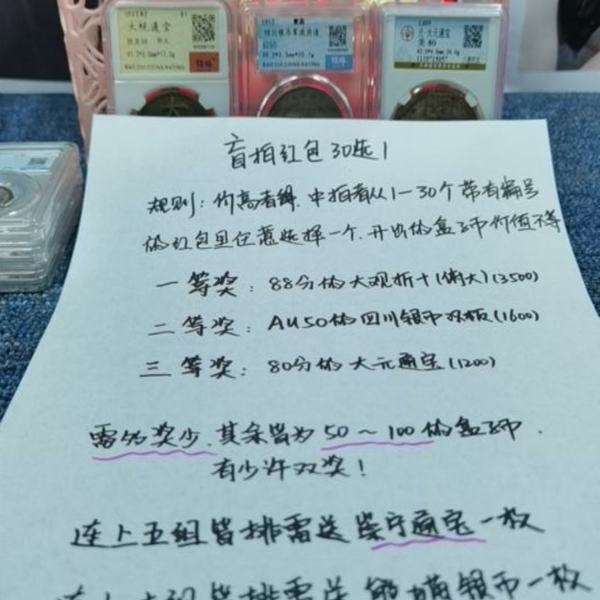 大观通宝
四川银币军政府造
大元通宝
美80
盲拍红包30选1
规则：价高者得.中拍者从1—30个带有编号
的红包里任意选择一个.开出的盒子币价值不等
一等奖：88分的大观折十(俏大)(3500)
二等奖：AU50的四川银币双板(1600)
三等奖：80分的大元通宝(1200)
雷多奖少.其余皆为50～100的盒子币.
有少许双奖！
连上五组皆排雷送崇宁通宝一枚
皆排雷送熊猫银币一枚